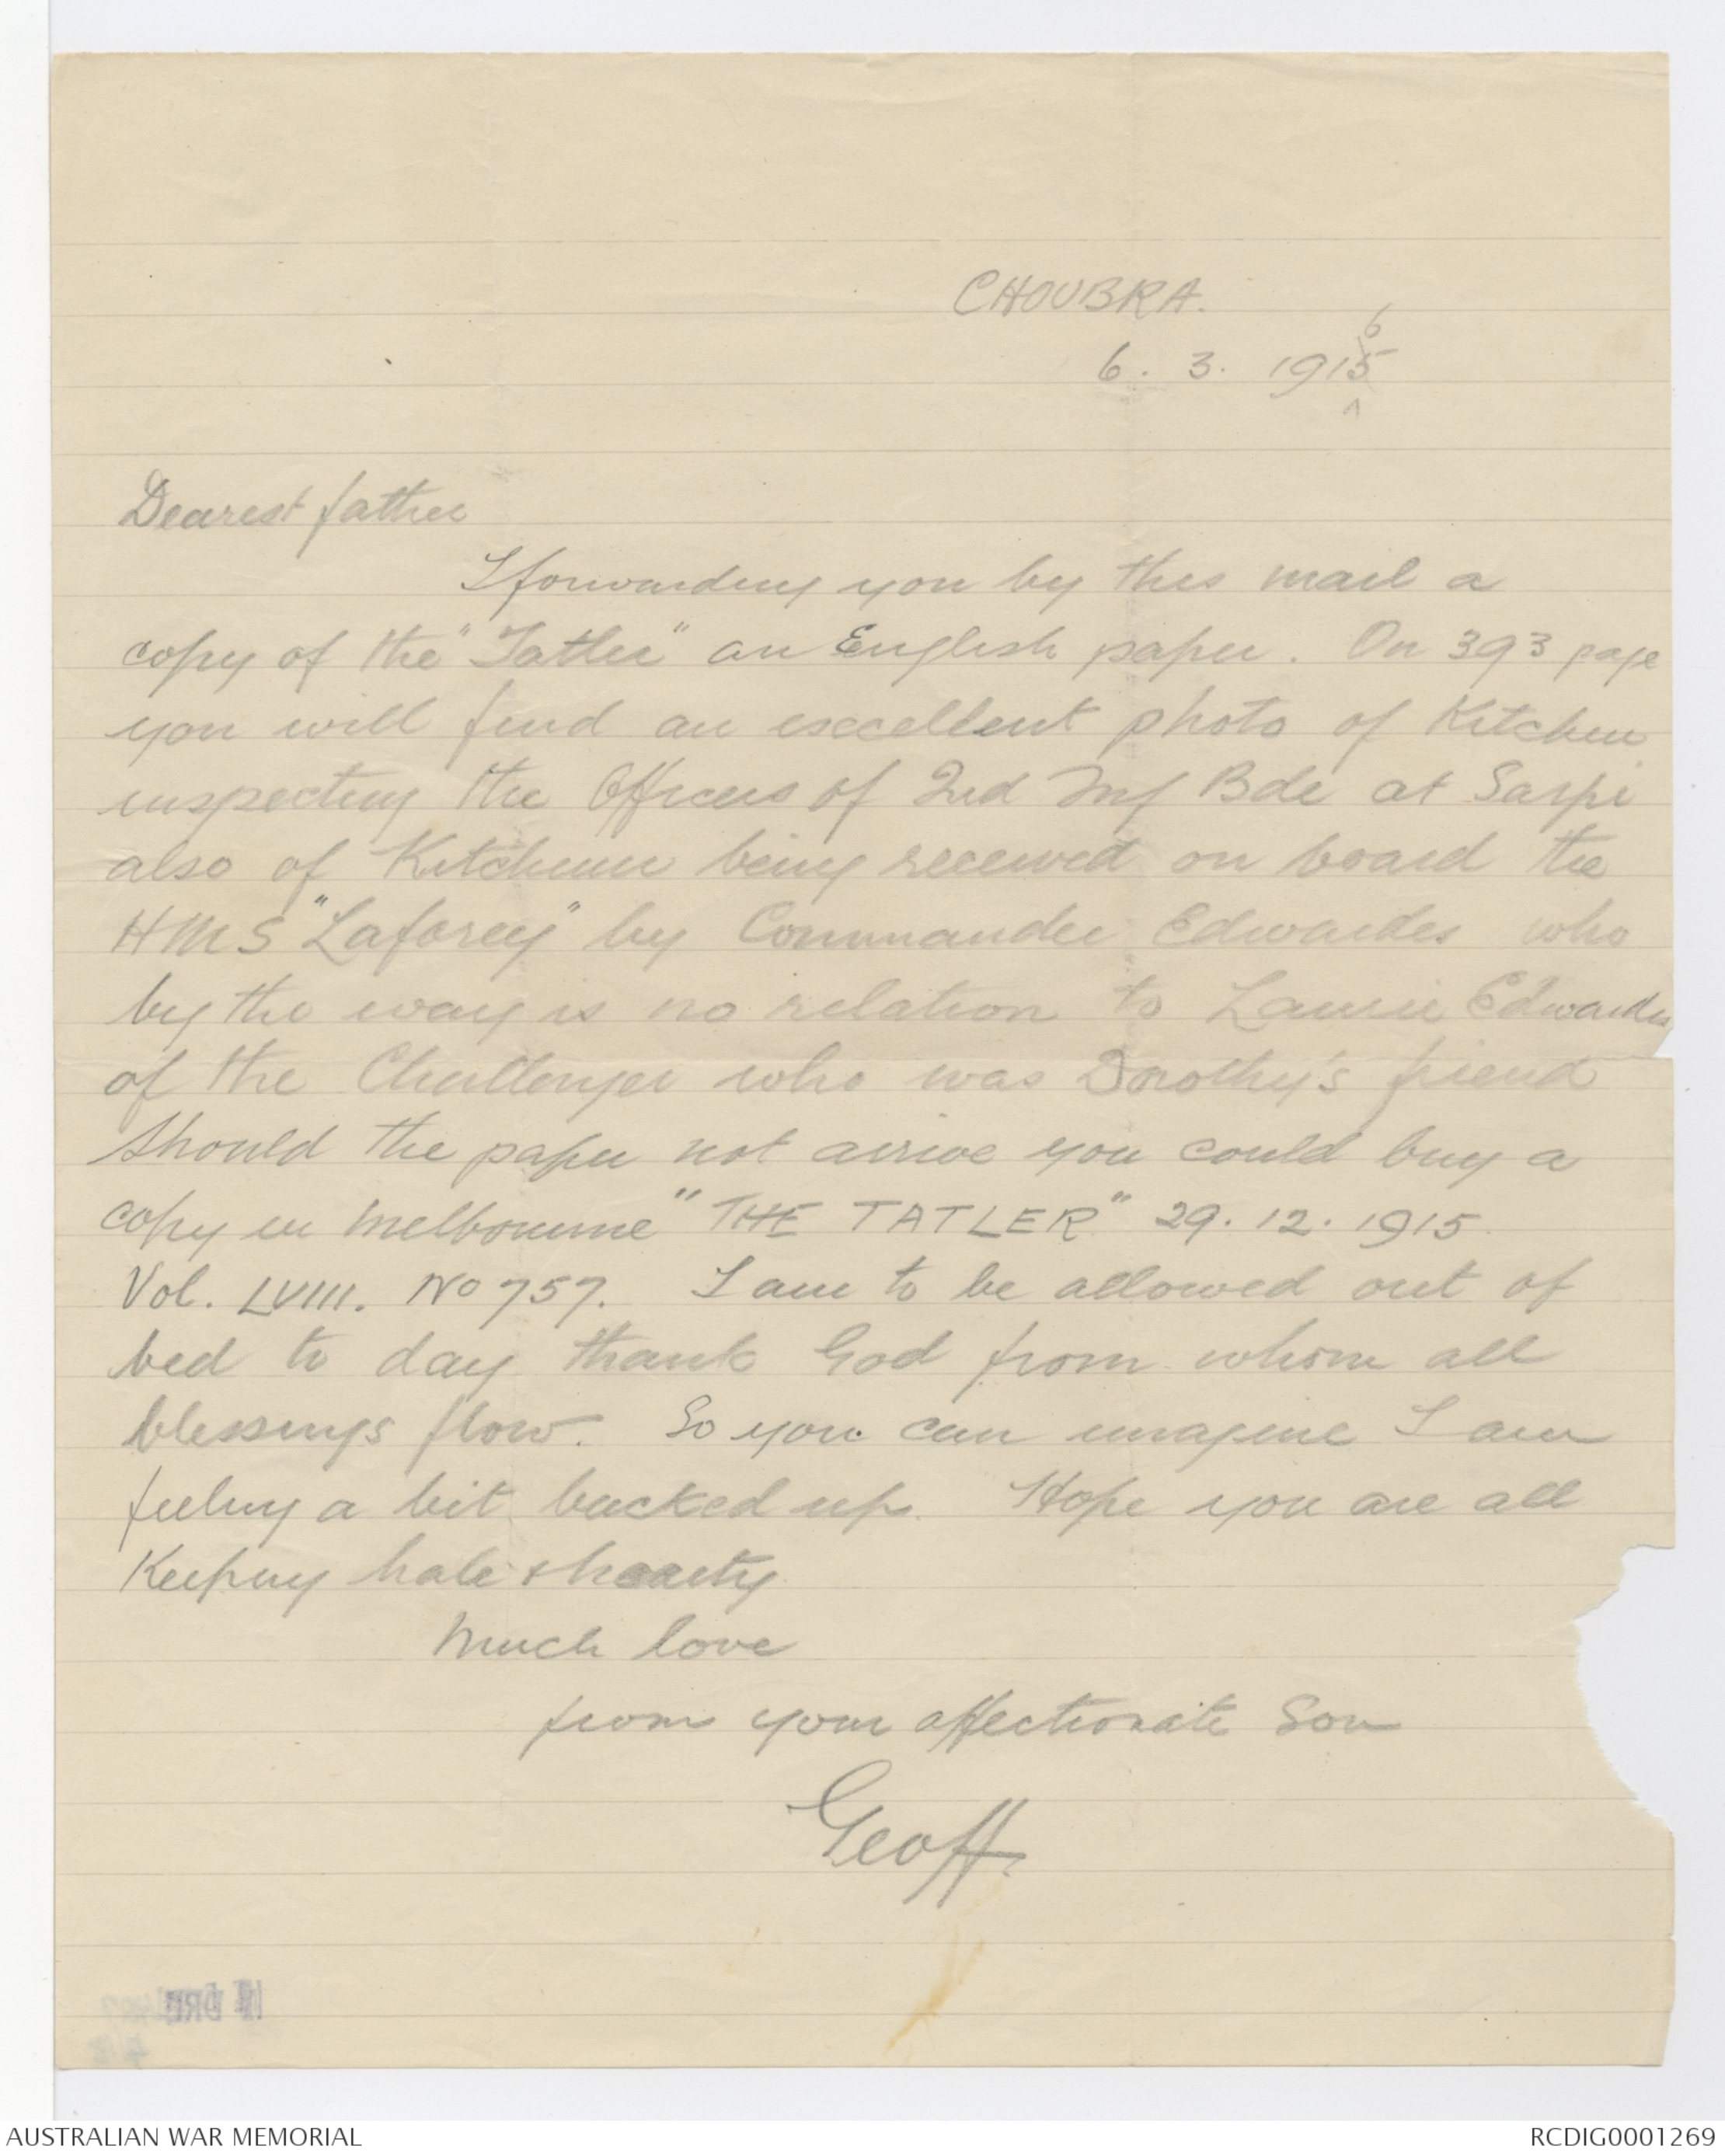 CHOUBRA.
6
6. 3. 1915
^
Dearest father
I forwarding you by this mail a
copy of the "Tatler" an English paper. On 393 page
you will find an excellent photo of Kitchener
inspecting the Officers of 2nd Inf Bde at Sarpi
also of Kitchener being received on board the
HMS "Laforey" by Commander Edwardes who
by the way is no relation to Laurie Edwardes
of the Challenger who was Dorothy's friend
Should the paper not arrive you could buy a
copy in Melbourne "THE TATLER" 29. 12. 1915.
Vol. LVIII. No 757. I am to be allowed out of
bed to day thank God from whom all
blessings flow. So you can imagine I am
feeling a bit bucked up. Hope you are all
Keeping hale & hearty
Much love
from your affectionate Son
Geoff.
AUSTRALIAN WAR MEMORIAL
RCDIG0001269